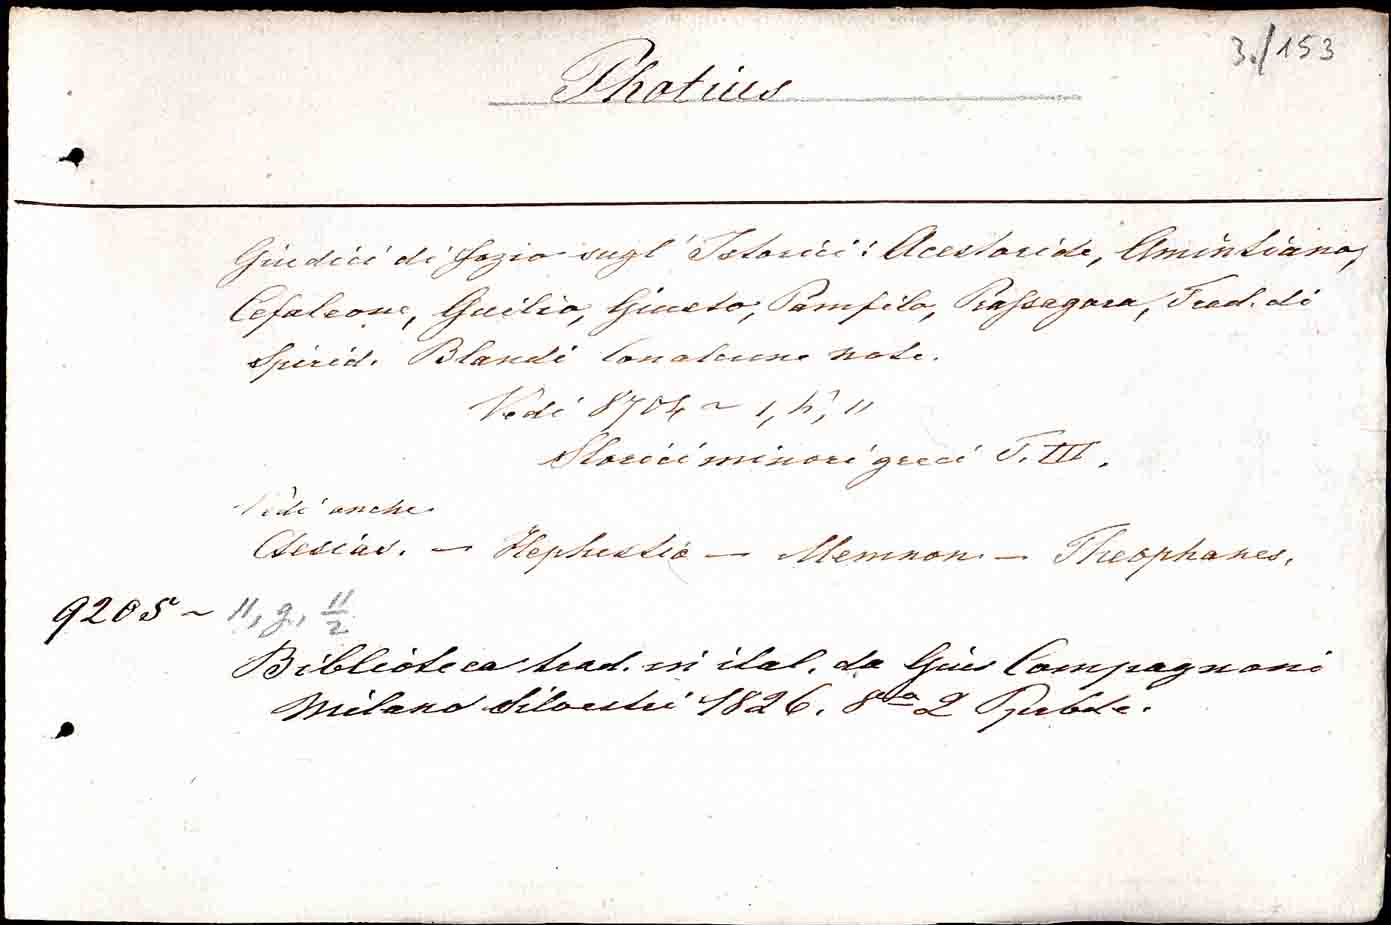 3./153
Photius
Giudici di Fozio sugl' Istorici: Acestoride, Amintiano,
Cefaleone, Guilio, Giusto, Pamfilo, Prassagora, Trad. di
Spirid. Blandi con alcune note.
Vedi 8704 ~ 1, h, 11
Storici minori greci T. III.
Vedi anche
Ctesias. — Hephestio — Memnon — Theophanes.
9205 ~ 11, g, 11/2
Biblioteca trad. in ital. da Gius Compagnoni
Milano Silvestri 1826. 8vo 2